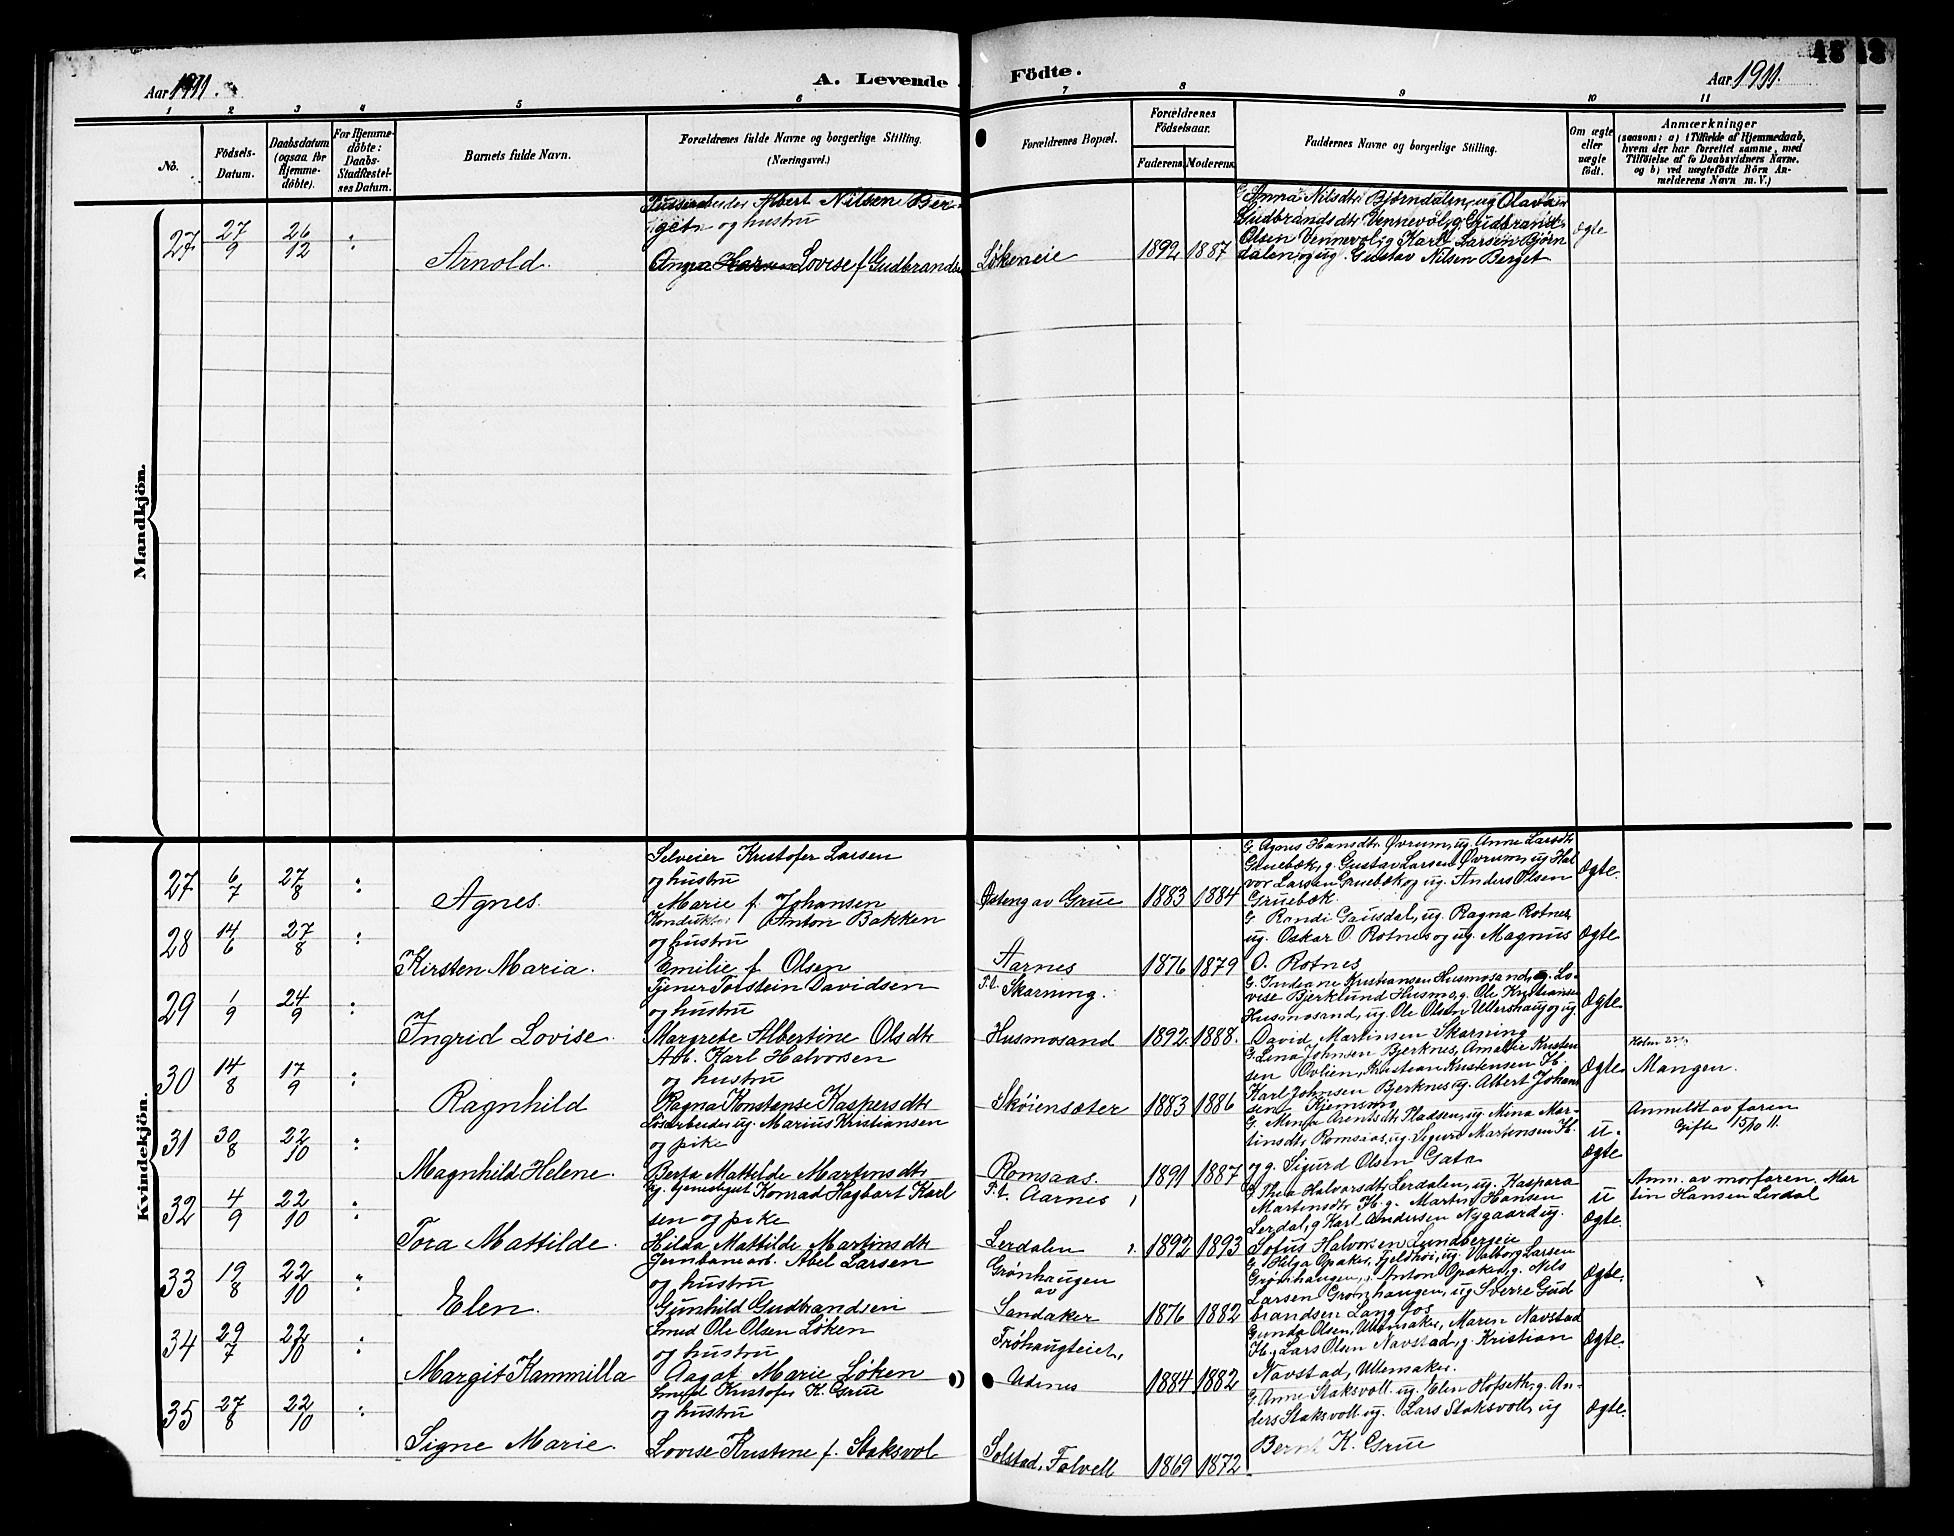 48
Aar 1911.
A. Levende
Födte.
Aar 1911.
1 2 3 4 5 6 7 8 9 10 11
No.
Födsels-Datum.
Daabsdatum (ogsaa for Hjemme-döbte).
For Hjemme-döbte: Daabs-Stadfæstel-ses Datum.
Barnets fulde Navn.
Forældrenes fulde Navne og borgerlige Stilling.
(Næringsvei.)
Forældrenes Bopæl.
Forældrenes Födselsaar.
Faderens Moderens
Faddernes Navne og borgerlige Stilling.
Om ægte eller uægte födt.
Anmærkninger
(saasom: a) i Tilfælde af Hjemmedaab,
hvem der har forrettet samme, med
Tilföielse af to Daabsvidners Navne.
og b) ved uægtefödte Börn An-
melderens Navn m. V.)
Mandkjön.
27 27/9 26/12 Arnold.
Albert Nilsen Ber-
get og hustru
Lovise f. Gudbrands
Løkeneie 1892 1887
G. Anna Nilsdtr. Bjørndalen, ug Olava
Gudbrandsdtr. Vennevol, g. Gudbrand
Olsen Vennevol, g Karl Larsen Bjørn
dalen og ug. Gustav Nilsen Berget
ægte
Kvindekjön.
27 6/7 27/8 Agnes.
Selveier Kristofer Larsen
og hustru
Marie f. Johansen
Østeng av Grue 1883 1884
G. Agnes Hansdtr. Øvrum, ug. Anne Larsdtr
Gruebæk, g. Gustav Larsen Øvrum, ug Hal
vor Larsen Gruebæk og ug. Anders Olsen
Gruebæk.
Ægte.
28 14/6 27/8 Kirsten Maria.
Konduktør Anton Bakken
og hustru
Emilie f. Olsen
Aarnes 1876 1879
G. Randi Gausdal, ug. Ragna Rotnes
ug. Oskar O. Rotnes og ug. Magnus
O. Rotnes
Ægte
29 1/9 24/9 Ingrid Lovise.
Tjener Torstein Davidsen
og hustru
Margrete Albertine Olsdtr
P.t. Skarning.
Husmosand 1892 1888.
G. Indiane Kristiansen Husmosand, ug. Lo-
vise Bjerklund Husmo, g. Ole Kristiansen
Husmosand, ug. Ole Olsen Ullershaug og ug
David Martinsen Skarning
Ægte.
30 14/8 17/9 Ragnhild
Arb. Karl Halvorsen
og hustru
Ragna Konstanse Kaspersdtr
Skøiensæter 1883 1886
G. Lina Johnsen Bjerknes, Amalie Kristen
sen Ovlien, Kristian Kristensen H.
Karl Johnsen Bjerknes ug. Albert Johan
sen Kjemsmo
Ægte
Mangen.
31 30/8 22/10 Magnhild Helene.
Løsarbeider ug. Marius Kristiansen
og pike
Berta Mattilde Martinsdtr
Romsaas. 1891 1887
G. Mina Arentsdtr Pladsen, ug. Mina Mar-
tinsdtr. Romsaas, ug. Sigurd Martinsen H.
og g. Sigurd Olsen Gata
u-
ægte
Anmeldt av faren
Gifte 15/10 11.
32 4/9 22/10 Tora Mattilde.
Konrad Hagbart Karl
sen og pike
Hilda Mattilde Martinsdtr
P.t. Aarnes,
Lerdalen 1892 1893
G. Thea Halvorsdtr Lerdalen, ug. Kaspara
Martinsdtr H. g. Martin Hansen
Lerdal, g Karl Andersen Nygaard ug.
Sofus Halvorsen Lundbergeie
u
ægte.
Anm. av morfaren. Mar
tin Hansen Lerdal
33 19/8 22/10 Elen.
Jernbanearb. Abel Larsen
og hustru
Gunhild Gudbrandsen
Grønhaugen
av
Sandaker 1876 1882
G. Helga Opaker, Fjeldhøi, ug. Valborg Larsen
Grønhaugen, g. Anton Opaker, g. Nils
Larsen Grønhaugen, ug Sverre Gud
brandsen Langfos
Ægte.
34 29/7 22/10 Margit Kammilla
Smed Ole Olsen Løken
og hustru
Aagot Marie Løken
Frøhaugteiet,
Udenes 1884 1882
Gunda Olsen, Ullemaker, Maren Navstad
H., Lars Olsen Navstad, g. Kristian
Navstad, Ullemaker.
Ægte.
35 27/8 22/10 Signe Marie.
Smed Kristofer K. Grue
og hustru
Lovise Kristine f. Staksvol
Solstad, Folvell 1869 1872
G. Anne Staksvoll. ug. Elen Hofseth, g. An-
ders Staksvoll. ug. Lars Staksvoll, ug
Bernt K. Grue
Ægte.